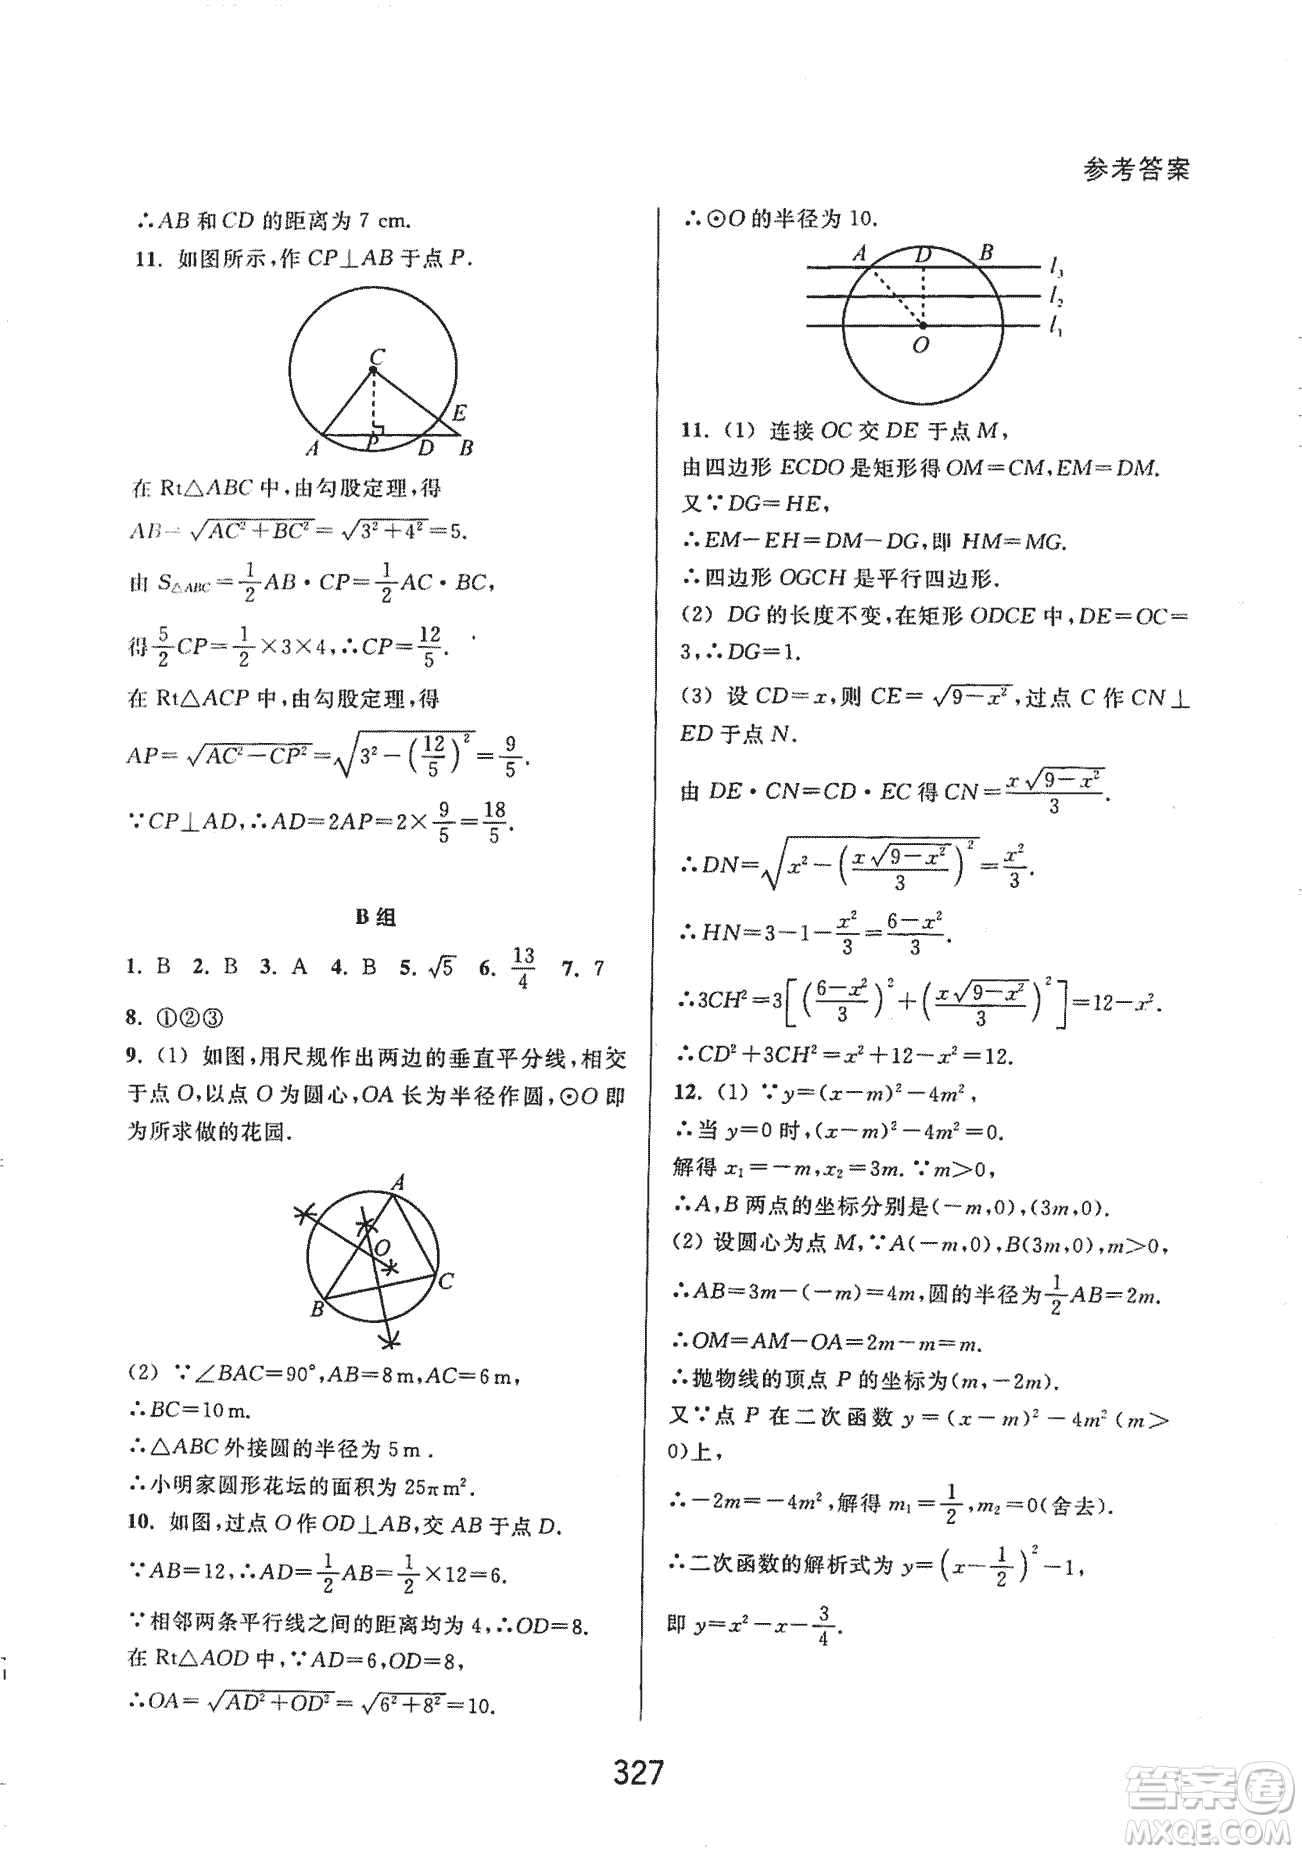 参考答案
∴AB和CD的距离为7 cm.
11. 如图所示,作CP⊥AB于点P.
C
E
A P D B
在Rt△ABC中,由勾股定理,得
AB=√(AC²+BC²)=√(3²+4²)=5.
由S△ABC=1/2 AB·CP=1/2 AC·BC,
得5/2 CP=1/2×3×4,∴CP=12/5.
在Rt△ACP中,由勾股定理,得
AP=√(AC²-CP²)=√(3²-(12/5)²)=9/5.
∵CP⊥AD,∴AD=2AP=2×9/5=18/5.
B组
1. B 2. B 3. A 4. B 5. √5 6. 13/4 7. 7
8. ①②③
9. (1) 如图,用尺规作出两边的垂直平分线,相交
于点O,以点O为圆心,OA长为半径作圆,⊙O即
为所求做的花园.
A
O
C
B
(2) ∵∠BAC=90°,AB=8m,AC=6m,
∴BC=10m.
∴△ABC外接圆的半径为5m.
∴小明家圆形花坛的面积为25πm².
10. 如图,过点O作OD⊥AB,交AB于点D.
∵AB=12,∴AD=1/2 AB=1/2×12=6.
∵相邻两条平行线之间的距离均为4,∴OD=8.
在Rt△AOD中,∵AD=6,OD=8,
∴OA=√(AD²+OD²)=√(6²+8²)=10.
∴⊙O的半径为10.
A D B
l₃
l₂
l₁
O
11. (1) 连接OC交DE于点M,
由四边形ECDO是矩形得OM=CM,EM=DM.
又∵DG=HE,
∴EM-EH=DM-DG,即HM=MG.
∴四边形OGCH是平行四边形.
(2) DG的长度不变,在矩形ODCE中,DE=OC=
3,∴DG=1.
(3) 设CD=x,则CE=√(9-x²),过点C作CN⊥
ED于点N.
由DE·CN=CD·EC得CN=x√(9-x²)/3.
∴DN=√(x²-(x√(9-x²)/3)²)=x²/3.
∴HN=3-1-x²/3=(6-x²)/3.
∴3CH²=3[((6-x²)/3)²+(x√(9-x²)/3)²]=12-x².
∴CD²+3CH²=x²+12-x²=12.
12. (1) ∵y=(x-m)²-4m²,
∴当y=0时,(x-m)²-4m²=0.
解得x₁=-m,x₂=3m.∵m>0,
∴A,B两点的坐标分别是(-m,0),(3m,0).
(2) 设圆心为点M,∵A(-m,0),B(3m,0),m>0,
∴AB=3m-(-m)=4m,圆的半径为1/2 AB=2m.
∴OM=AM-OA=2m-m=m.
∴抛物线的顶点P的坐标为(m,-2m).
又∵点P在二次函数y=(x-m)²-4m²(m>
0)上,
∴-2m=-4m²,解得m₁=1/2,m₂=0(舍去).
∴二次函数的解析式为y=(x-1/2)²-1,
即y=x²-x-3/4.
327
答案圈
MXQE.COM